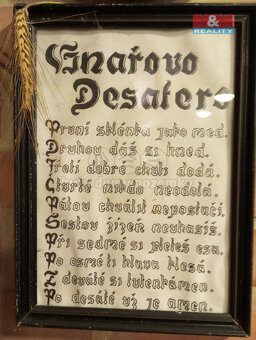 REALITY
Vinařovo
Desatero
První sklénka jako med.
Druhou dáš si hned.
Třetí dobré chuti dodá.
Čtvrté nikdo neodolá.
Pátou chválit nepostačí.
Šestou žízeň neuhasíš.
Při sedmé si pleteš esa.
Po osmé ti hlava klesá.
Po deváté si tutenkámen.
Po desáté už je amen.